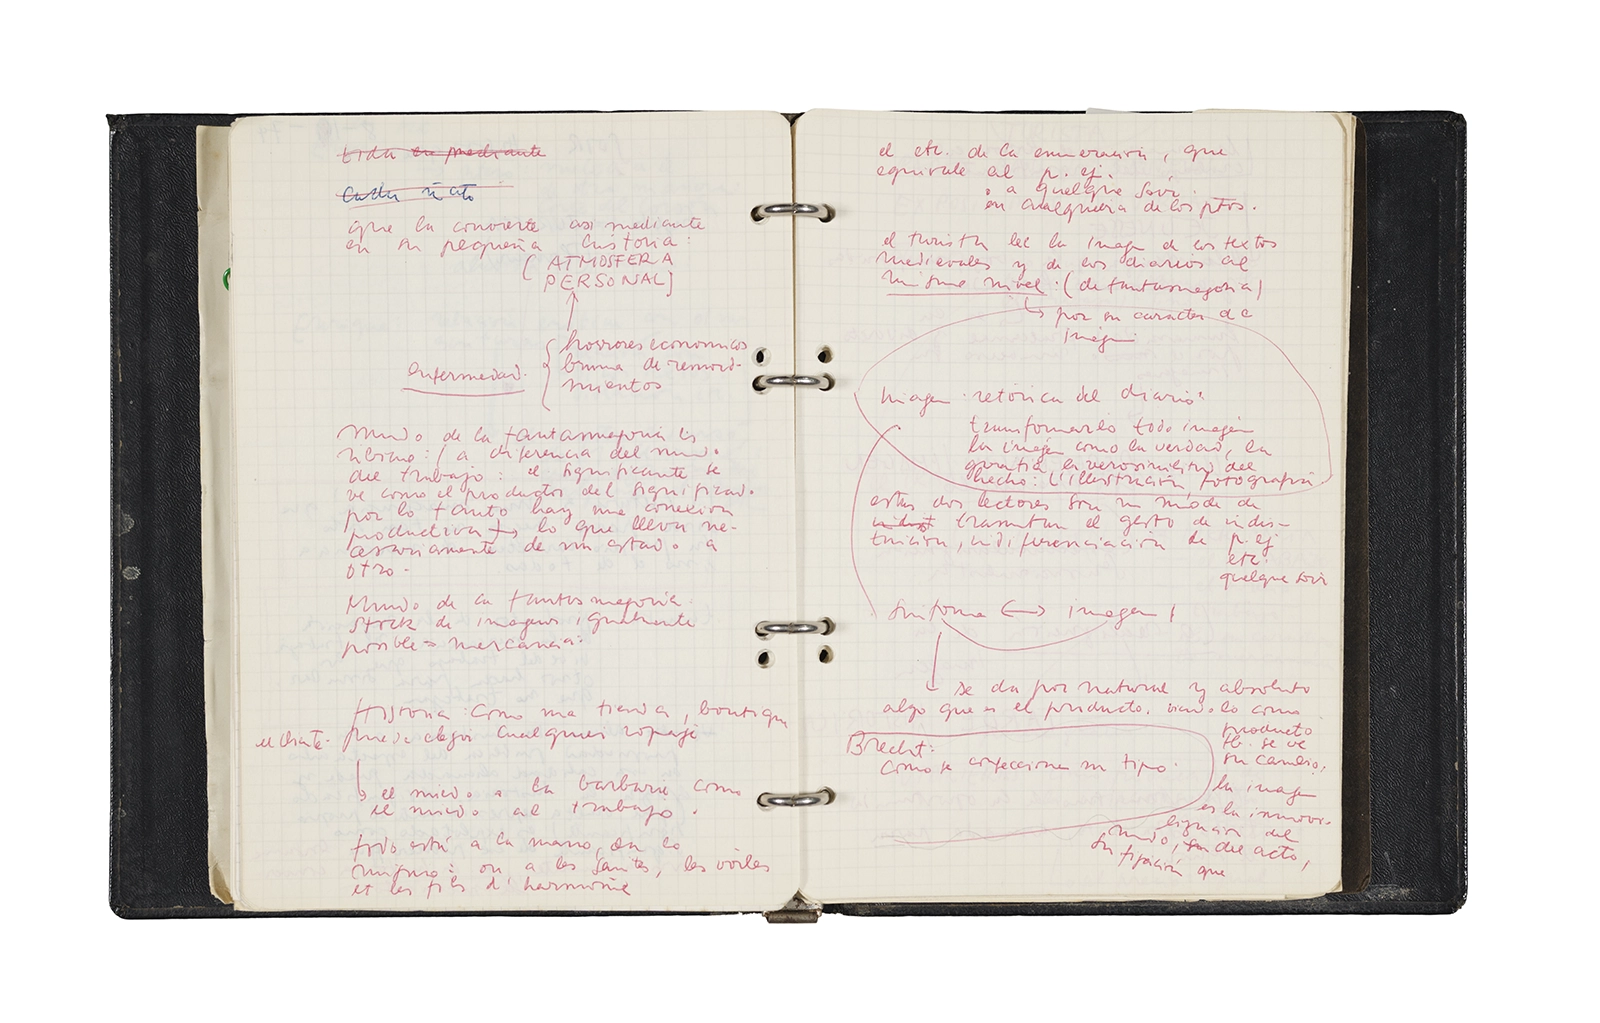 que la convierte asi mediante
en su pequeña historia:
(ATMOSFERA
PERSONAL]
enfermedad.
horrores economicos
bruma de remordi-
mientos
Mundo de la fantasmagoria es
(a diferencia del mundo
del trabajo: el significante se
ve como el productos del significado.
por lo tanto hay una conexion
productiva lo que lleva ne-
cesariamente de un estado a
otro.
Mundo de la fantasmagoria.
stock de imagenes igualmente
posible = mercancia:
Historia: como una tienda, boutique
puede elegir cualquier ropaje
el miedo a la barbarie como
el miedo al trabajo.
todo está a la mano, en lo
mismo: on a les Saintes, les voiles
et les fils d'harmonie
el etc. de la enumeración, que
equivale al p. ej.
o a quelque soir.
en cualquiera de los ptos.
el turista lee la imagen de los textos
medievales y de los diarios al
mismo nivel: (de fantasmagoria)
por su caracter de
imagen
Imagen retórica del diario:
transformarlo todo imagen
la imagen como la verdad, la
garantia, la verosimilitud del
hecho: L'illustración fotografia
estos dos lectores son un modo de
trasmitan el gesto de indis-
tinción, indiferenciación de p. ej
etc.
quelque soir
Sintoma ↔ imagen
se da por natural y absoluto
algo que es el producto. viendolo como
producto
tb. se ve
su cambio,
la imagen
es la inmovi-
lización del
mundo, del acto,
su fijación que
Brecht:
como se confecciona un tipo.